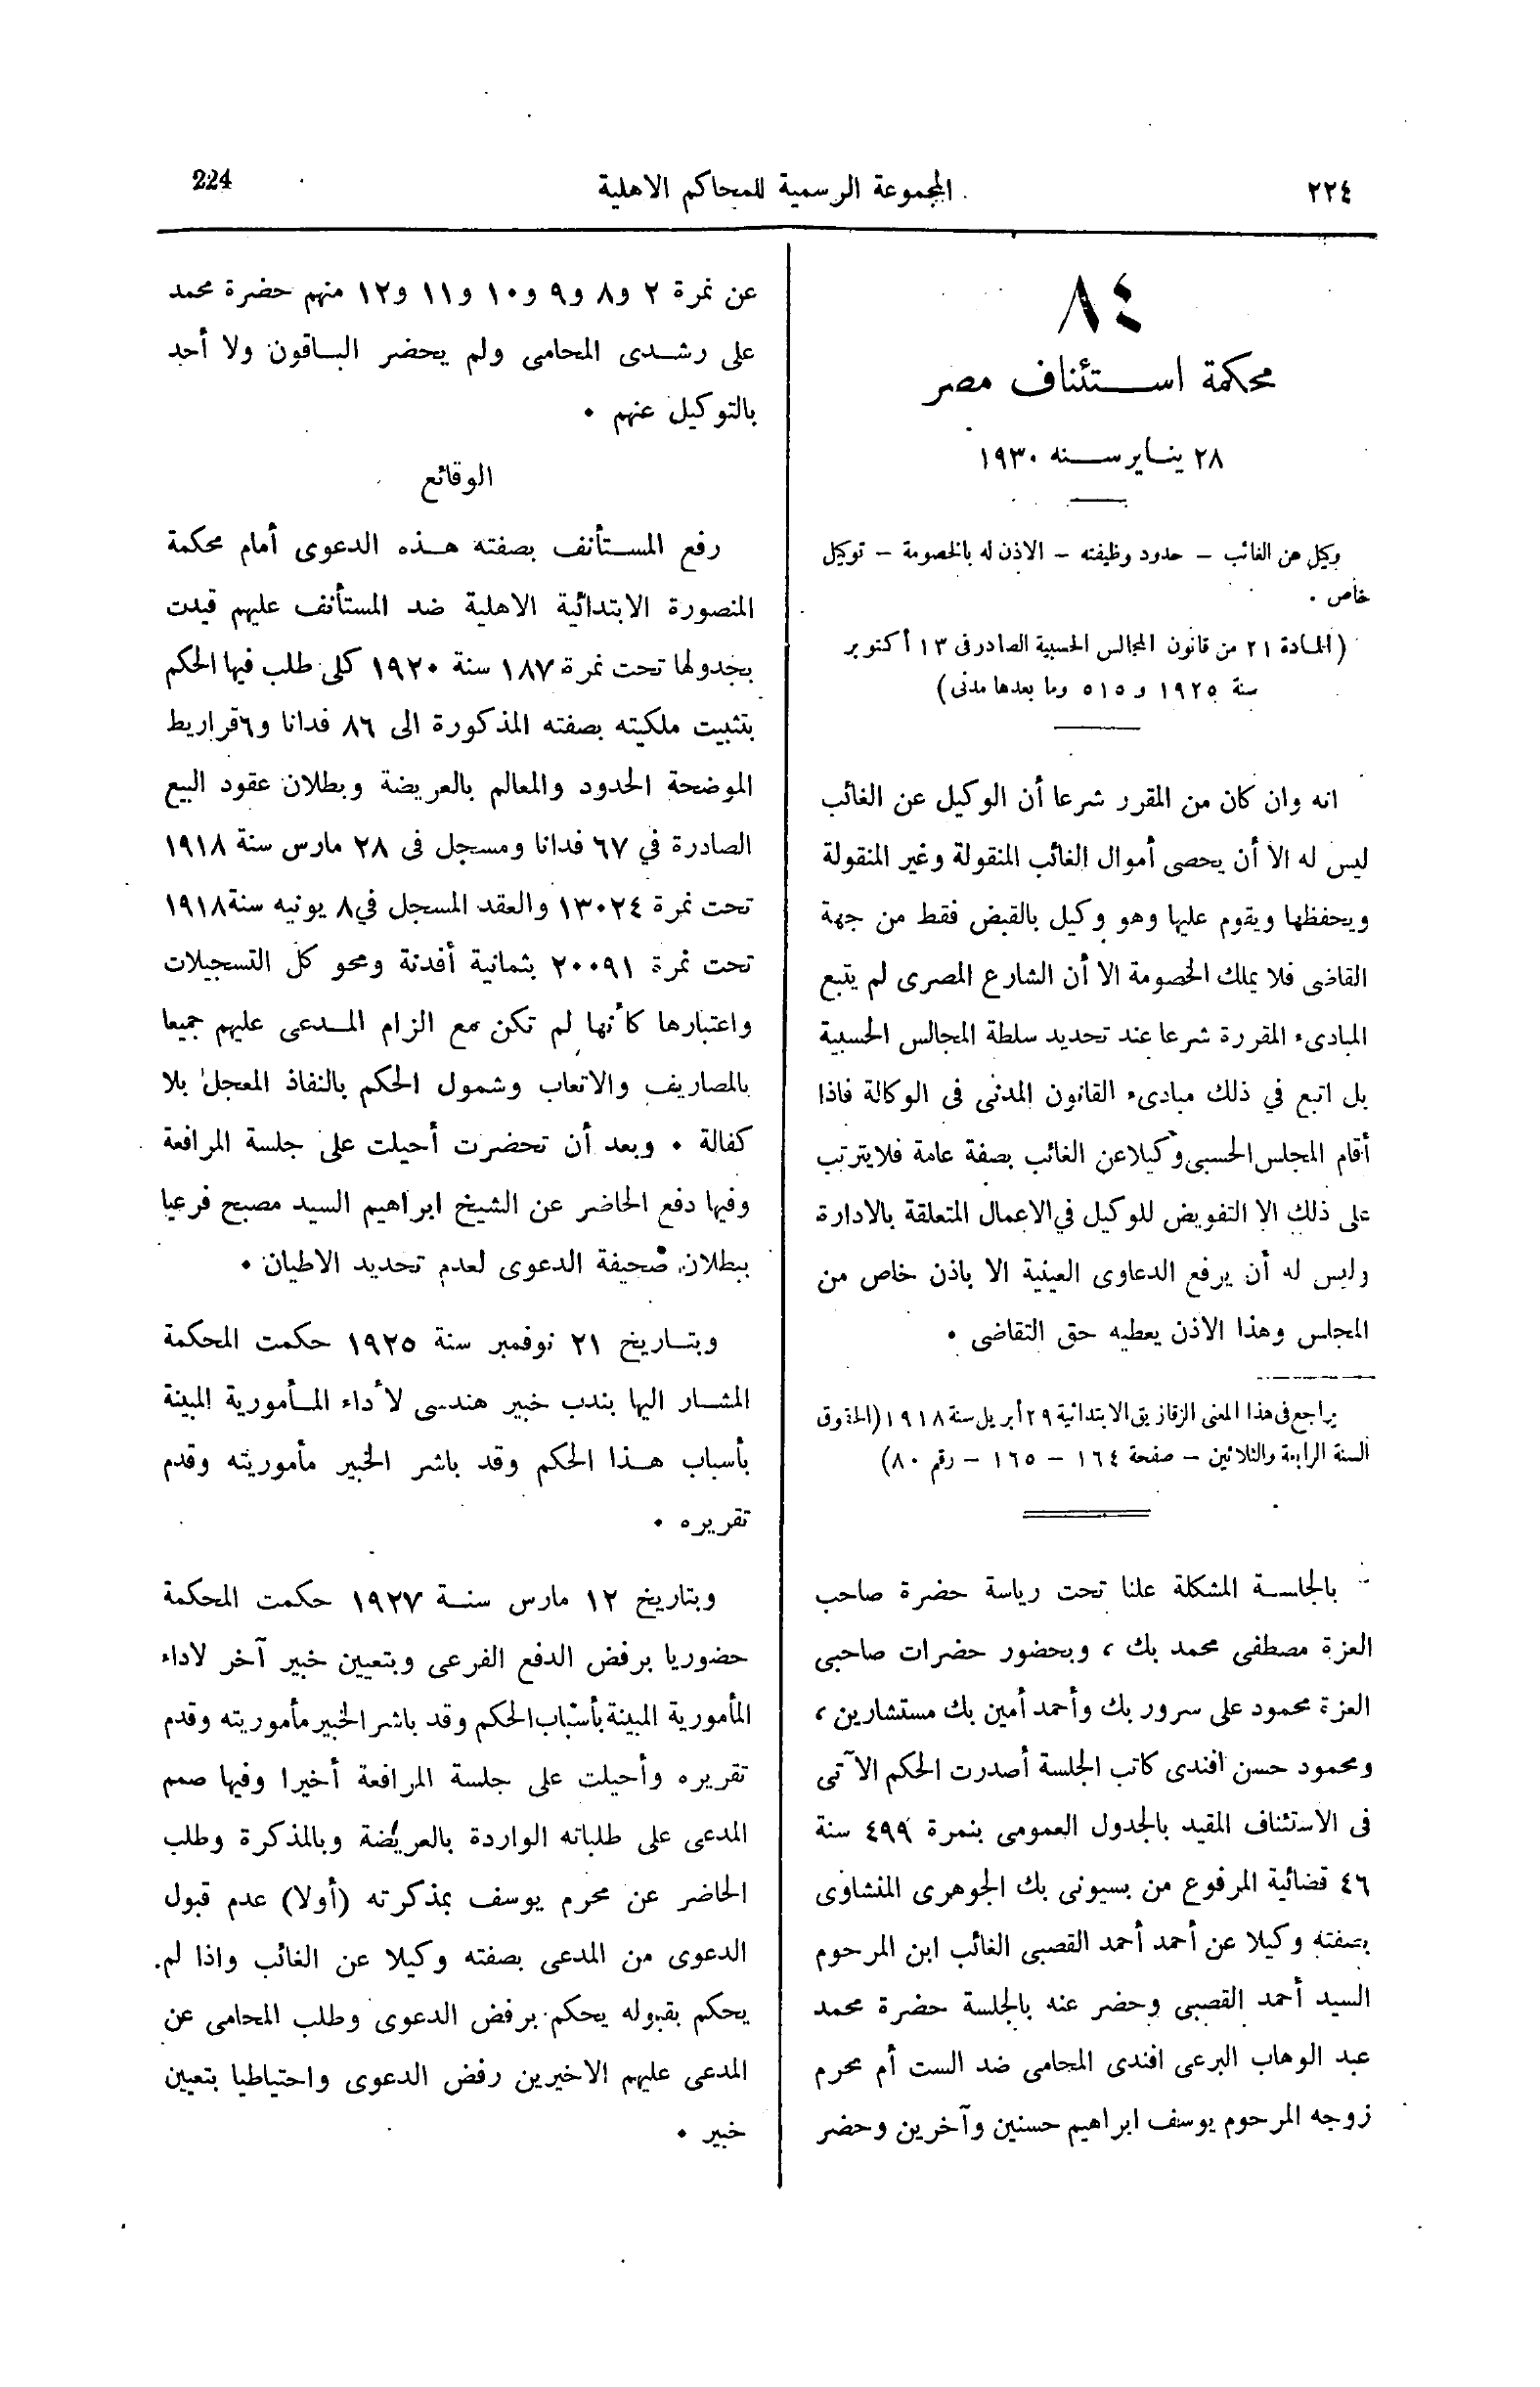 ٢٢٤
المجموعة الرسمية للمحاكم الاهلية
224
٨٤
محكمة استئناف مصر
٢٨ يناير سنه ١٩٣٠
وكيل عن الغائب - حدود وظيفته - الاذن له بالخصومة - توكيل
خاص .
(المادة ٢١ من قانون المجالس الحسبية الصادر فى ١٣ أكتوبر
سنة ١٩٢٥ و ٥١٥ وما بعدها مدنى)
انه وان كان من المقرر شرعا أن الوكيل عن الغائب
ليس له الا أن يحصى أموال الغائب المنقولة وغير المنقولة
ويحفظها ويقوم عليها وهو وكيل بالقبض فقط من جهة
القاضى فلا يملك الخصومة الا أن الشارع المصرى لم يتبع
المبادىء المقررة شرعا عند تحديد سلطة المجالس الحسبية
بل اتبع في ذلك مبادىء القانون المدنى فى الوكالة فاذا
أقام المجلس الحسبى وكيلا عن الغائب بصفة عامة فلا يترتب
على ذلك الا التفويض للوكيل في الاعمال المتعلقة بالادارة
وليس له أن يرفع الدعاوى العينية الا باذن خاص من
المجلس وهذا الاذن يعطيه حق التقاضى .
يراجع فى هذا المعنى الزقازيق الابتدائية ٢٩ أبريل سنة ١٩١٨ (الحقوق
السنة الرابعة والثلاثين - صفحة ١٦٤ - ١٦٥ - رقم ٨٠)
بالجلسة المشكلة علنا تحت رياسة حضرة صاحب
العزة مصطفى محمد بك ، وبحضور حضرات صاحبى
العزة محمود على سرور بك وأحمد أمين بك مستشارين ،
ومحمود حسن افندى كاتب الجلسة أصدرت الحكم الآتى
فى الاستئناف المقيد بالجدول العمومى بنمرة ٤٩٩ سنة
٤٦ قضائية المرفوع من بسيونى بك الجوهرى المنشاوى
بصفته وكيلا عن أحمد أحمد القصبى الغائب ابن المرحوم
السيد أحمد القصبى وحضر عنه بالجلسة حضرة محمد
عبد الوهاب البرعى افندى المحامى ضد الست أم محرم
زوجه المرحوم يوسف ابراهيم حسنين وآخرين وحضر
عن نمرة ٢ و٨ و٩ و١٠ و١١ و١٢ منهم حضرة محمد
على رشدى المحامى ولم يحضر الباقون ولا أحد
بالتوكيل عنهم .
الوقائع
رفع المستأنف بصفته هذه الدعوى أمام محكمة
المنصورة الابتدائية الاهلية ضد المستأنف عليهم قيدت
بجدولها تحت نمرة ١٨٧ سنة ١٩٢٠ كلى طلب فيها الحكم
بتثبيت ملكيته بصفته المذكورة الى ٨٦ فدانا و٦ قراريط
الموضحة الحدود والمعالم بالعريضة وبطلان عقود البيع
الصادرة في ٦٧ فدانا ومسجل فى ٢٨ مارس سنة ١٩١٨
تحت نمرة ١٣٠٢٤ والعقد المسجل في ٨ يونيه سنة ١٩١٨
تحت نمرة ٢٠٠٩١ بثمانية أفدنة ومحو كل التسجيلات
واعتبارها كأنها لم تكن مع الزام المدعى عليهم جميعا
بالمصاريف والاتعاب وشمول الحكم بالنفاذ المعجل بلا
كفالة . وبعد أن تحضرت أحيلت على جلسة المرافعة
وفيها دفع الحاضر عن الشيخ ابراهيم السيد مصبح فرعيا
ببطلان صحيفة الدعوى لعدم تحديد الاطيان .
وبتاريخ ٢١ نوفمبر سنة ١٩٢٥ حكمت المحكمة
المشار اليها بندب خبير هندسى لأداء المأمورية المبينة
بأسباب هذا الحكم وقد باشر الخبير مأموريته وقدم
تقريره .
وبتاريخ ١٢ مارس سنة ١٩٢٧ حكمت المحكمة
حضوريا برفض الدفع الفرعى وبتعيين خبير آخر لاداء
المأمورية المبينة بأسباب الحكم وقد باشر الخبير مأموريته وقدم
تقريره وأحيلت على جلسة المرافعة أخيرا وفيها صمم
المدعى على طلباته الواردة بالعريضة وبالمذكرة وطلب
الحاضر عن محرم يوسف بمذكرته (أولا) عدم قبول
الدعوى من المدعى بصفته وكيلا عن الغائب واذا لم
يحكم بقبوله يحكم برفض الدعوى وطلب المحامى عن
المدعى عليهم الاخيرين رفض الدعوى واحتياطيا بتعيين
خبير .